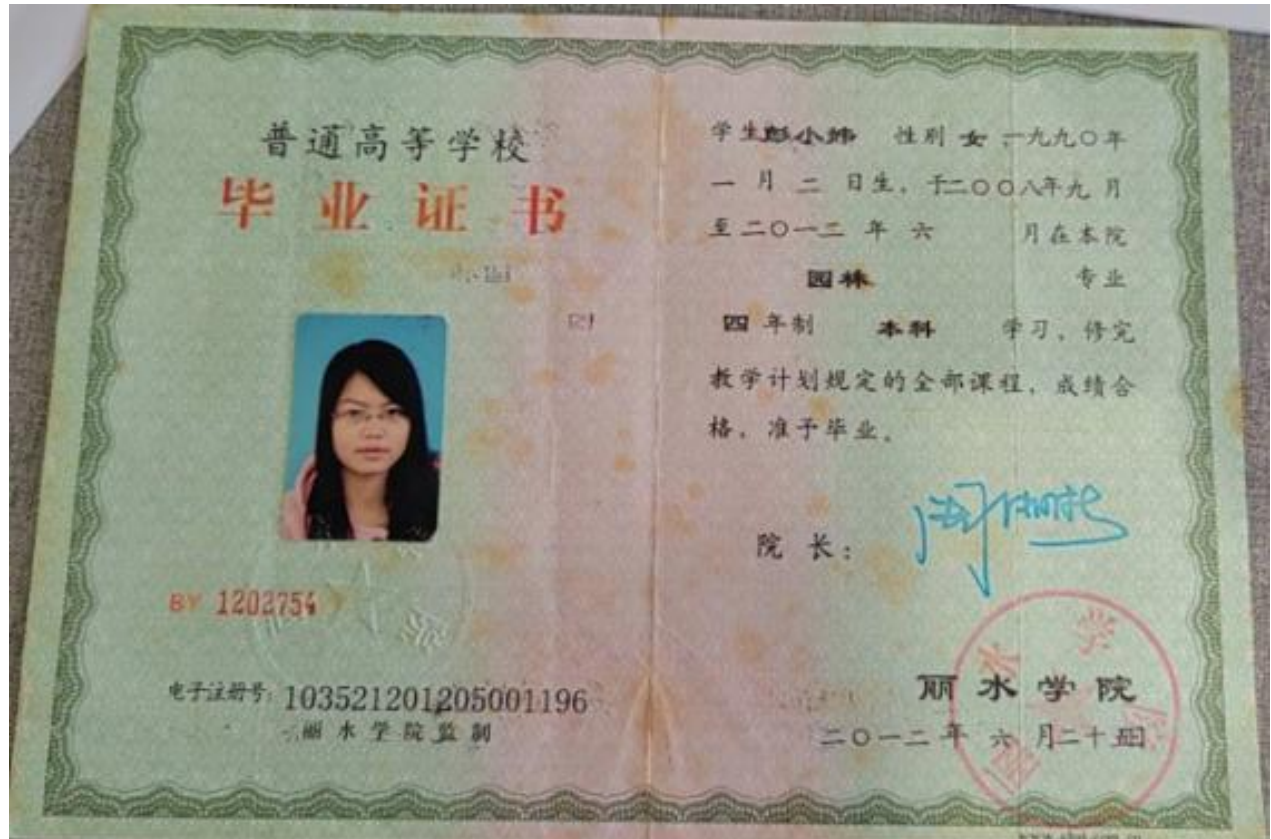 普通高等学校
毕业证书
BY 1202754
电子注册号:103521201205001196
丽水学院监制
学生彭小玮 性别 女,一九九〇年
一月二日生,于二〇〇八年九月
至二〇一二年六 月在本院
园林 专业
四年制 本科 学习,修完
教学计划规定的全部课程,成绩合
格,准予毕业。
院长:
丽水学院
二〇一二年六月二十五日